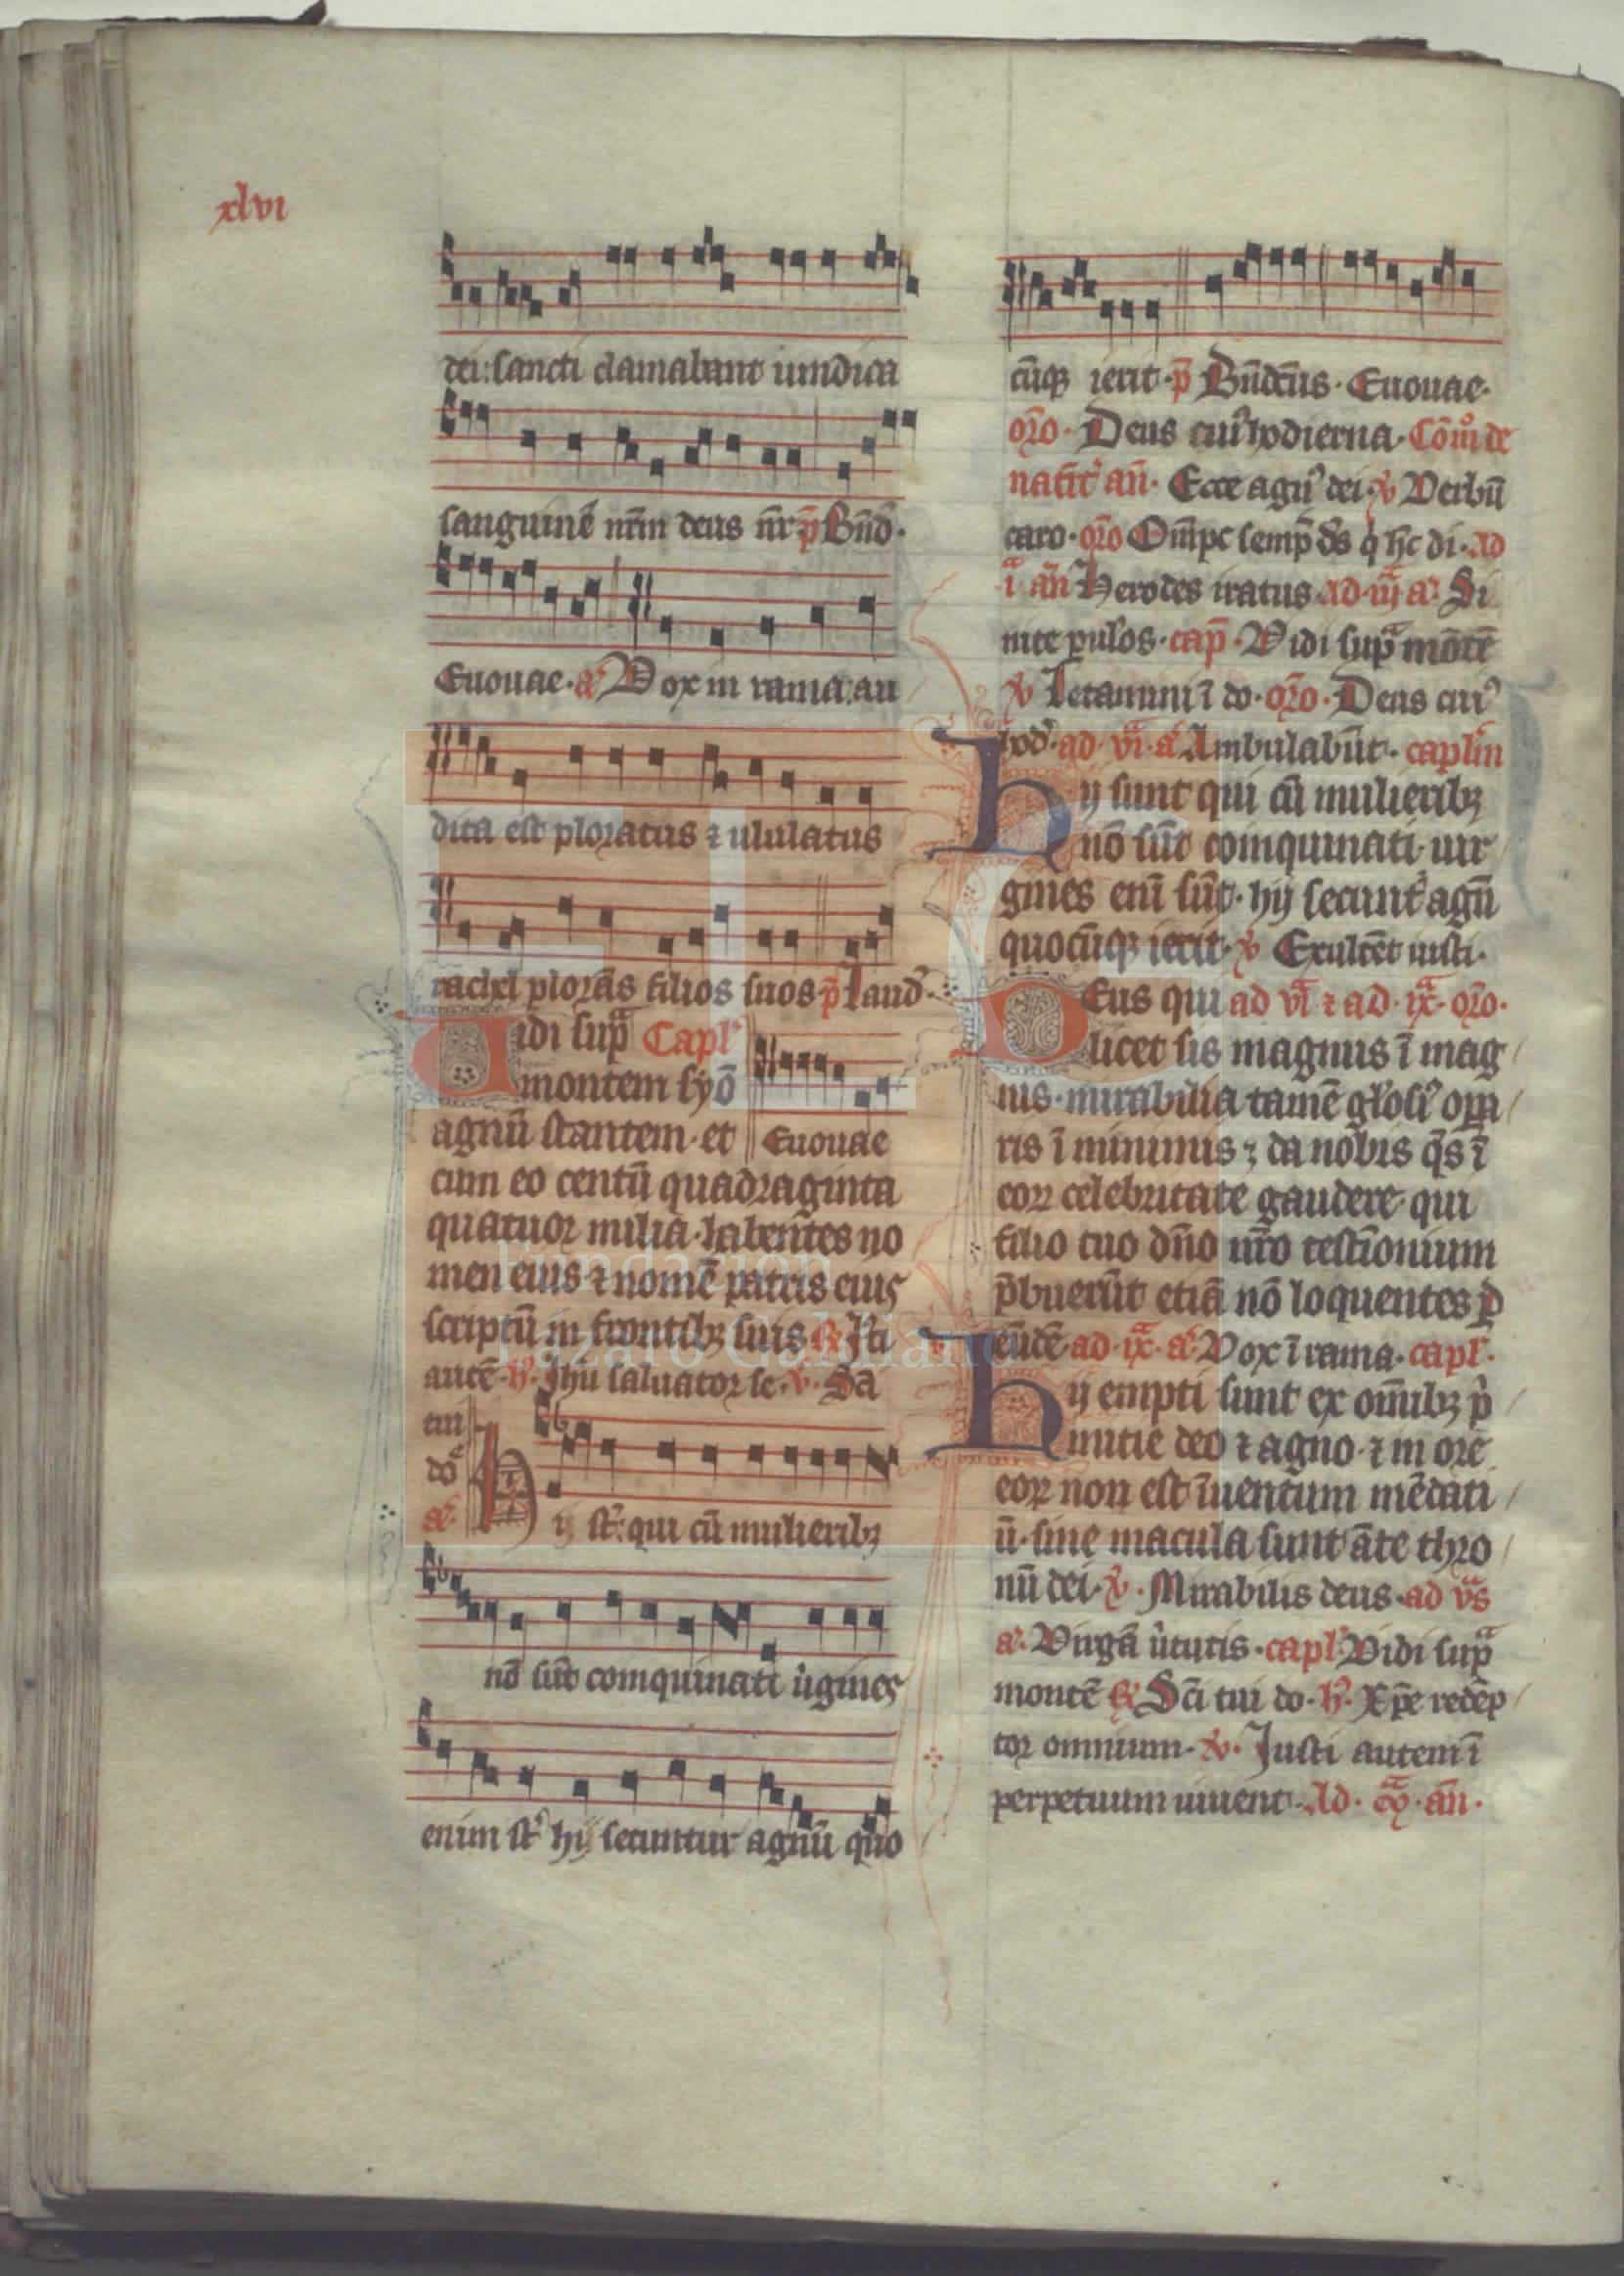 xlvi
dei: sancti clamabant uindica
sanguinē nr̄m deus nr̄ p̄ Bn̄d.
Euouae. a Vox in rama: au
dita est ploratus ⁊ ululatus
rachel plorās filios suos p̄ Laud
Vidi sup̄ Capl'
montem syō
agnū stantem. et Euouae
cum eo centū quadraginta
quatuor milia. habentes no
men eius ⁊ nomē patris eius
scriptū in frontibꝫ suis
autē. h'. Jhū saluator se. v. Sc̄i
tui
do
a
Hij st': qui cū mulieribꝫ
nō sūt comquinati u'gines
enim st' hij secuntur agnū quo
cūqꝫ ierit. p̄ Bn̄dcn̄s. Euouae.
or̄o. Deus cui' hodierna. Cōm de
natit' an̄. Ecce agn' dei. v Verbū
caro. or̄o Om̄ps semp̄ ds q' hc di. ad
i an̄ Herodes iratus. ad. iij a Si
nite puulos. cap̄. Vidi sup̄ mōtē
v Letamini ī do. or̄o. Deus cui'
hod'. ad. vi. a Ambulabūt. caplm̄
Hij sunt qui cū mulieribꝫ
nō sūt comquinati. uir
gines enī sūt. hij secunt' agnū
quocūqꝫ ierit. v Exultēt iusti.
Deus qui ad vi ⁊ ad. ix. or̄o.
licet sis magnus ī mag
nis. mirabilia tamē gl'osi' opa
ris ī minimis; da nobis qs ī
eoꝝ celebritate gaudere. qui
filio tuo dn̄o nr̄o testīonium
p̄buerūt etiā nō loquentes p
eūdē ad. ix. a Vox ī rama. capl'.
Hij empti sunt ex om̄ibꝫ p'
mitie deo ⁊ agno. ⁊ in ore
eoꝝ non est īuentum mēdati
ū. sine macula sunt āte thro
nū dei. v. Mirabilis deus. ad vs
a. Virgā u'tutis. capl' Vidi sup̄
montē Sc̄i tui do. h'. Xpe redēp
tor omnium. v. Justi autem ī
perpetuum uiuent. Ad. an̄.
Fundación
Lázaro Galdiano